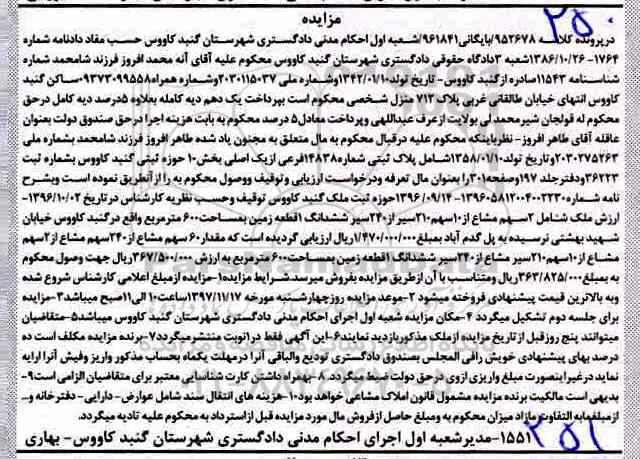 مزایده
۲۵۰
درپرونده کلاسه ۹۵۲۶۷۸/بایگانی۹۶۱۸۴۱/شعبه اول احکام مدنی دادگستری شهرستان گنبد کاووس حسب مفاد دادنامه شماره
۱۷۶۴-۱۳۸۶/۱۰/۲۶شعبه ۳دادگاه حقوقی دادگستری شهرستان گنبد کاووس محکوم علیه آقای آنه محمد افروز فرزند شامحمد شماره
شناسنامه ۱۱۵۴۳صادره ازگنبد کاووس- تاریخ تولد۱۳۴۲/۰۱/۱۰وشماره ملی ۲۰۳۰۱۱۵۰۳۷وشماره همراه۰۹۳۷۳۰۹۹۵۵۸ساکن گنبد
کاووس انتهای خیابان طالقانی غربی پلاک ۷۱۲ منزل شخصی محکوم است بپرداخت یک دهم دیه کامله بعلاوه ۵درصد دیه کامل درحق
محکوم له قولجان شیرمحمد لی بولایت ازعرف عبداللهی وپرداخت معادل۵ درصد محکوم به بابت هزینه اجرا درحق صندوق دولت بعنوان
عاقله آقای طاهر افروز- نظرباینکه محکوم علیه درقبال محکوم به مال متعلق به مجنون یاد شده طاهر افروز فرزند شامحمد بشماره ملی
۲۰۳۰۲۷۵۲۶۳وتاریخ تولد۱۳۵۸/۰۱/۱۰شامل پلاک ثبتی شماره۱۴۸۳۸فرعی ازیک اصلی بخش۱۰ حوزه ثبتی گنبد کاووس بشماره ثبت
۳۶۲۲۳ودفترجلد ۱۹۷وصفحه۳۰۱را بعنوان مال تعرفه ودرخواست ارزیابی وتوقیف ووصول محکوم به را ازآنطریق نموده است وبشرح
نامه شماره۱۳۹۶۰۵۸۱۲۰۰۴۰۰۲۲۳۰-۱۳۹۶/۰۹/۱۴حوزه ثبت ملک گنبد کاووس توقیف وحسب نظریه کارشناس درتاریخ ۱۳۹۶/۱۰/۰۲-
ارزش ملک شامل ۲سهم مشاع از۱۰سهم۲۱۰سیر از۲۴۰سیر ششدانگ ۱قطعه زمین بمساحت۶۰۰ مترمربع واقع درگنبد کاووس خیابان
شهید بهشتی نرسیده به پل گدم آباد بمبلغ۱/۴۷۰/۰۰۰/۰۰۰ریال ارزیابی گردیده است که مقدار۶۰ سهم مشاع از۲۴۰سهم مشاع از۲سهم
مشاع از۱۰سهم۲۱۰سیر مشاع از۲۴۰سیر ششدانگ ۱قطعه زمین بمساحت۶۰۰ مترمربع به ارزش ۳۶۷/۵۰۰/۰۰۰ ریال جهت وصول محکوم
به بمبلغ۳۶۳/۸۲۵/۰۰۰ ریال ومتناسب با آن ازطریق مزایده بفروش میرسد.شرایط مزایده۱-مزایده ازمبلغ اعلامی کارشناس شروع شده
وبه بالاترین قیمت پیشنهادی فروخته میشود ۲-موعد مزایده روزچهارشنبه مورخه ۱۳۹۷/۱۱/۱۷ساعت۱۰ الی۱۱صبح میباشد۳-مزایده
برای جلسه دوم تشکیل میگردد ۴-مکان مزایده شعبه اول اجرای احکام مدنی دادگستری شهرستان گنبد کاووس میباشد۵-متقاضیان
میتوانند پنج روزقبل از تاریخ مزایده ازملک مذکوربازدید نمایند۶-این آگهی فقط در۱نوبت منتشرمیگردد۷-برنده مزایده مکلف است ده
درصد بهای پیشنهادی خویش رافی المجلس بصندوق دادگستری تودیع والباقی آنرا درمهلت یکماه بحساب مذکور واریز وفیش آنرا ارایه
نماید درغیراینصورت مبلغ واریزی ازوی درحق دولت ضبط میگردد.۸-بهمراه داشتن کارت شناسایی معتبر برای متقاضیان الزامی است۹-
بدیهی است مالکیت برنده مزایده مشمول قانون املاک مشاعی خواهد بود۱۰-هزینه های انتقال سند شامل عوارض- دارایی- دفترخانه و...
ازمبلغ‌مابه التفاوت مازاد میزان محکوم به ومبلغ حاصل ازفروش مال مورد مزایده قبل ازاسترداد به محکوم علیه تادیه میگردد.
۱۵۵۱-مدیرشعبه اول اجرای احکام مدنی دادگستری شهرستان گنبد کاووس- بهاری
۲۵۱